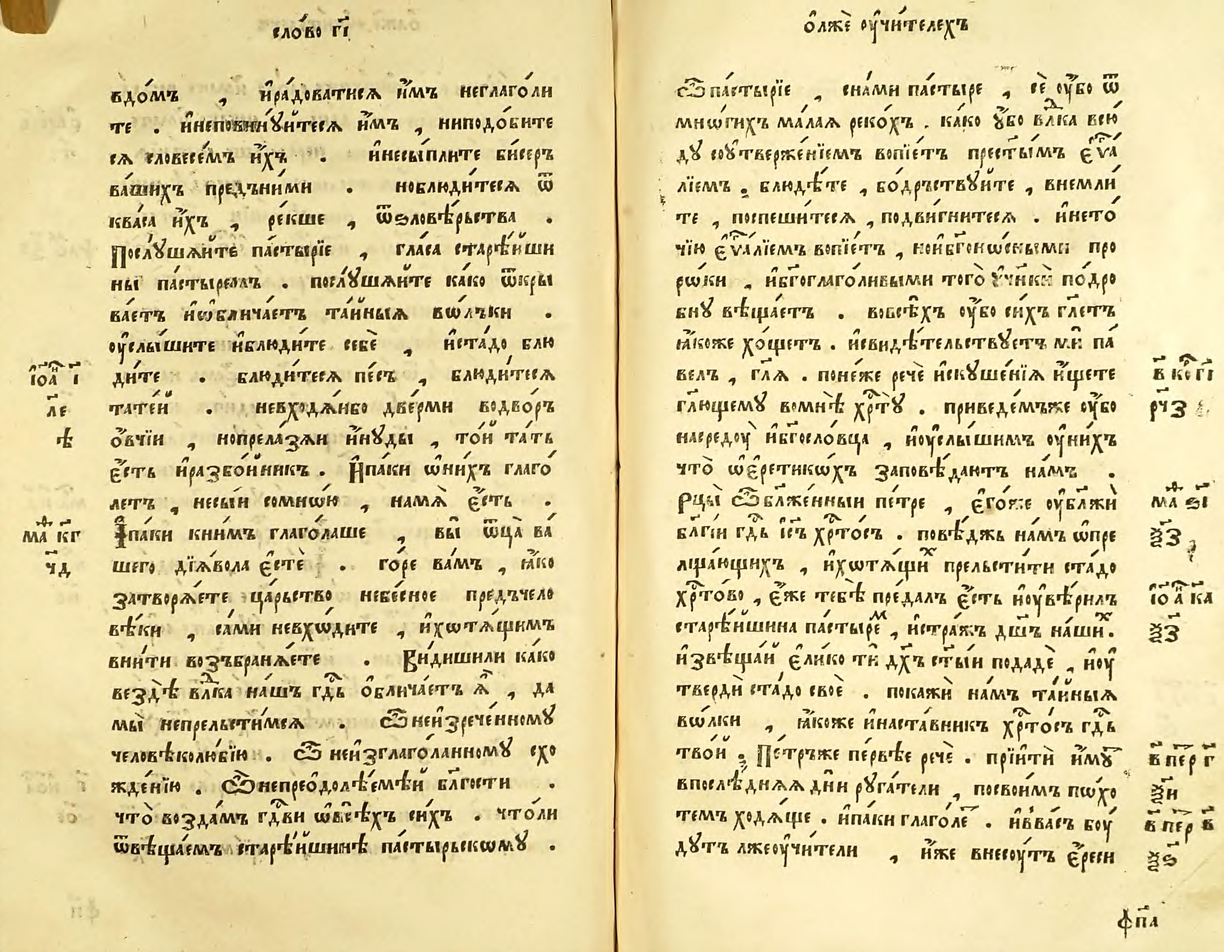 сло́во г҃і
вдо́мъ , и҆ра́доватисѧ и҆̀мъ неглаголи
те . и҆непови́нꙋ́итесѧ и҆̀мъ , ниподо́бите
сѧ словесе́мъ и҆́хъ . и҆несы́плите би́серъ
ва́шихъ пре́дъни́ми . ноблюди́тесѧ ѿ
ква́са и҆́хъ , ре́кше , ѿѕловѣ́рьства .
Послꙋ́шѧ́ите па́стырїе , гла́са старѣ́иши
ны па́стыремъ . послꙋ́шѧ́ите ка́ко ѿкры
ва́етъ и҆ѡ҆блича́етъ та́йныѧ во́лъки .
оу҆слы́шите и҆блюди́те себѐ , и҆ста́до блю
ди́те . блюди́тесѧ пе́съ , блюди́тесѧ
і҆ѡа҃ і҃
ле
татей . невходѧ́ибо две́рми водво́ръ
ѣ
о҆́вчїи , нопрела́зѧи и҆нꙋ́ды , то́и та́ть
є҆́сть и҆разбо́йникъ . И҆па́ки ѡ҆ни́хъ глаго́
летъ , несы́и сомно́ю , намѧ̀ є҆́сть .
І҆па́ки кни́мъ глаго́лаше , вы̀ ѿца̀ ва́
маѳ кг҃
шего дїѧ́вола є҆стѐ . го́ре ва́мъ , ꙗ҆́ко
чд
затворѧ́ете ца́рьство небе́сное пре́дъчело
вѣ́ки , са́ми невхо́дите , и҆хотѧ́щимъ
вни́ити возъбранѧ́ете . Ви́дишили ка́ко
вездѣ̀ влⷣка на́шъ гдⷭ҇ь о҆блича́етъ ѧ҆̀ , да
мы̀ непрельсти́мсѧ . Ѽнеи҆зрече́нномꙋ
человѣколю́бїю . Ѽ неи҆зглаго́ланномꙋ схо
жде́нїю . Ѽнепреодолѣ́емѣи бл҃гости .
что̀ возда́мъ гдⷭ҇ви ѡ҆всѣ́хъ си́хъ . что́ли
ѿвѣща́емъ старѣ́ишинѣ па́стырьскомꙋ .
о҆лжѐ оу҆чи́телехъ
Ѽ па́стырїе , сна́ми па́стыре , сѐ оу҆́бо ѿ
мно́гихъ ма́лаѧ реко́хъ . ка́ко оу҆́бо влⷣка всю́
дꙋ соутвержде́нїемъ вопїе́тъ прест҃ы́мъ є҆ѵⷢ҇а
лїемъ . блюдѣ́те , бо́дрьствꙋ́ите , внемли́
те , поспеши́тесѧ , подви́гнитесѧ . и҆нето́
чїю є҆ѵⷢ҇а́лїемъ вопїе́тъ , нои҆бг҃оно́сными про
ро́ки , и҆бг҃оглаголи́выми того̀ оу҆ч҃нкѝ подро́
бнꙋ вѣща́етъ . вовсѣ́хъ оу҆́бо си́хъ гл҃етъ
ꙗ҆́коже хо́щетъ . и҆свидѣ́тельствꙋетъ мѝ па́
велъ , гл҃ѧ . поне́же речѐ и҆скꙋше́нїѧ и҆́щете
в҃ ко г҃і
гл҃ющемꙋ вомнѣ̀ хрⷭ҇тꙋ̀ . приведе́мъже оу҆́бо
рч҃з
насредоу҆̀ и҆бг҃осло́вца , и҆оу҆слы́шимъ оу҆ни́хъ
что̀ ѡ҆є҆ретико́хъ заповѣ́даютъ на́мъ .
Рцы̀ ѽбл҃же́нныи пе́тре , є҆го́же оу҆блажѝ
маѳ ѕ҃і
бл҃гі́и гдⷭ҇ь і҆с҃ъ хрⷭ҇то́съ . повѣ́джь на́мъ ѡ҆пре
лща́ющихъ , и҆хотѧ́щиⷯ прельсти́ти ста́до
хрⷭ҇то́во , є҆́же тебѣ̀ преда́лъ є҆́сть и҆оу҆вѣ́рилъ
і҆ѡа҃ ка
старѣ́ишина па́стыреⷨ , и҆стра́жъ дш҃ъ на́шиⷯ .
и҆звѣща́й є҆ли́ко тѝ дх҃ъ ст҃ы́и подадѐ , и҆оу҆
твердѝ ста́до своѐ . покажѝ на́мъ та́йныѧ
во́лки , ꙗ҆́коже и҆наста́вникъ хрⷭ҇то́съ гдⷭ҇ь
тво́й . Пе́тръже пе́рвѣе речѐ . прїи́ти и҆́мꙋⷮ
в҃ пер г҃
впослѣ́днѧѧ дни̑ рꙋга́тели , посвои́мъ по́хо
темъ ходѧ́ще . и҆па́ки глаго́леⷮ . и҆вва́съ боу́
в҃ пер в҃
дꙋтъ лжеоу҆чи́тели , и҆́же внесоу́тъ є҆́реси
фп҃а